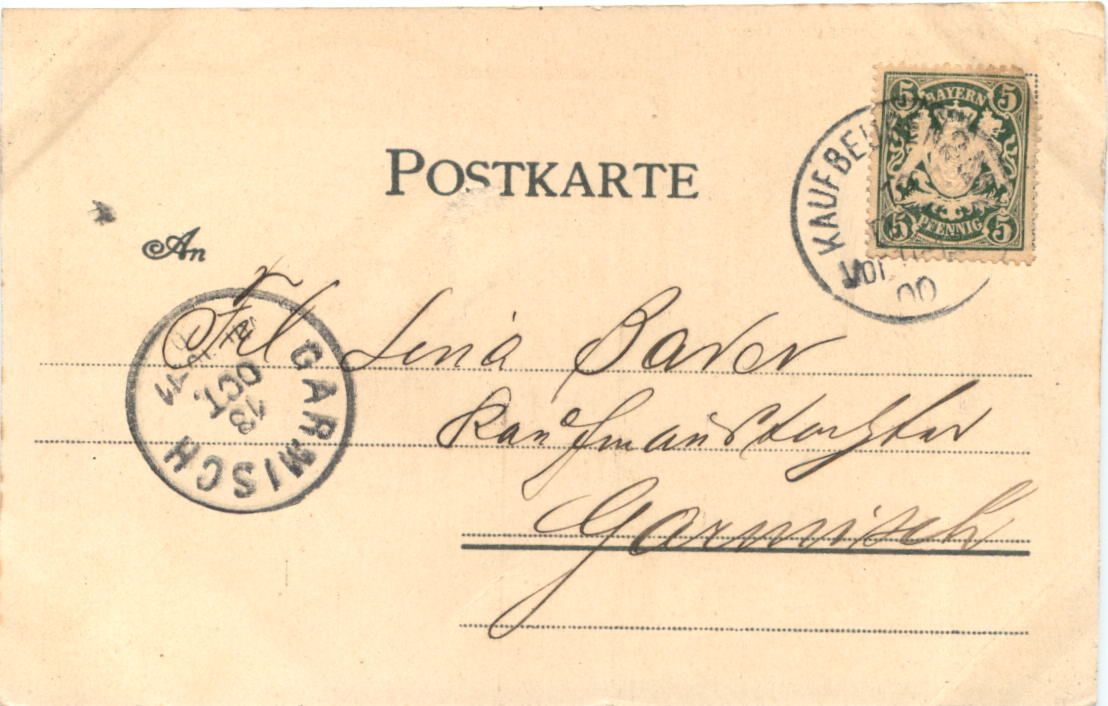 POSTKARTE
5 BAYERN 5
5 PFENNIG 5
KAUFBEU
VOR
00
An
Frl Lena Bader
Kaufmannstochter
Garmisch
GARMISCH
13
OCT.